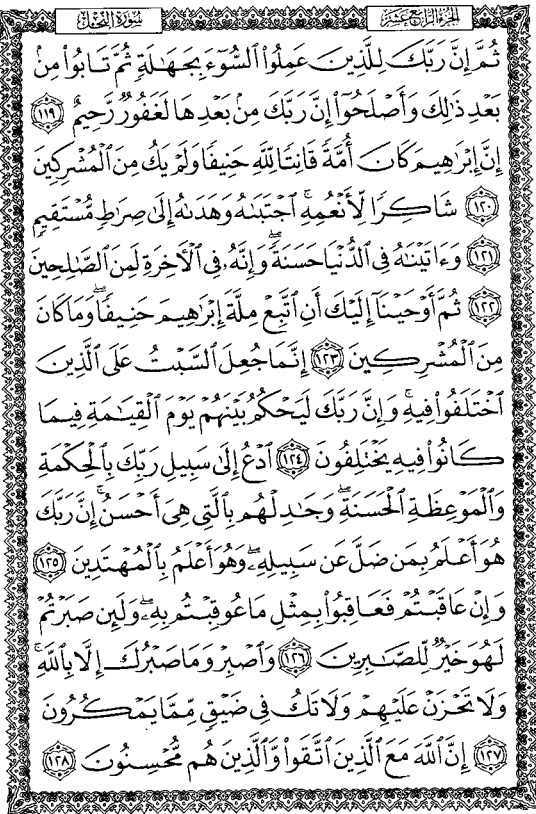 الجزء الرابع عشر
سورة النحل
ثُمَّ إِنَّ رَبَّكَ لِلَّذِينَ عَمِلُوا۟ ٱلسُّوٓءَ بِجَهَٰلَةٍ ثُمَّ تَابُوا۟ مِنۢ
بَعْدِ ذَٰلِكَ وَأَصْلَحُوٓا۟ إِنَّ رَبَّكَ مِنۢ بَعْدِهَا لَغَفُورٌ رَّحِيمٌ ١١٩
إِنَّ إِبْرَٰهِيمَ كَانَ أُمَّةً قَانِتًا لِّلَّهِ حَنِيفًا وَلَمْ يَكُ مِنَ ٱلْمُشْرِكِينَ
١٢٠ شَاكِرًا لِّأَنْعُمِهِ ۚ ٱجْتَبَىٰهُ وَهَدَىٰهُ إِلَىٰ صِرَٰطٍ مُّسْتَقِيمٍ
١٢١ وَءَاتَيْنَٰهُ فِى ٱلدُّنْيَا حَسَنَةً ۖ وَإِنَّهُۥ فِى ٱلْأَخِرَةِ لَمِنَ ٱلصَّٰلِحِينَ
١٢٢ ثُمَّ أَوْحَيْنَآ إِلَيْكَ أَنِ ٱتَّبِعْ مِلَّةَ إِبْرَٰهِيمَ حَنِيفًا ۖ وَمَا كَانَ
مِنَ ٱلْمُشْرِكِينَ ١٢٣ إِنَّمَا جُعِلَ ٱلسَّبْتُ عَلَى ٱلَّذِينَ
ٱخْتَلَفُوا۟ فِيهِ ۚ وَإِنَّ رَبَّكَ لَيَحْكُمُ بَيْنَهُمْ يَوْمَ ٱلْقِيَٰمَةِ فِيمَا
كَانُوا۟ فِيهِ يَخْتَلِفُونَ ١٢٤ ٱدْعُ إِلَىٰ سَبِيلِ رَبِّكَ بِٱلْحِكْمَةِ
وَٱلْمَوْعِظَةِ ٱلْحَسَنَةِ ۖ وَجَٰدِلْهُم بِٱلَّتِى هِىَ أَحْسَنُ ۚ إِنَّ رَبَّكَ
هُوَ أَعْلَمُ بِمَن ضَلَّ عَن سَبِيلِهِۦ ۖ وَهُوَ أَعْلَمُ بِٱلْمُهْتَدِينَ ١٢٥
وَإِنْ عَاقَبْتُمْ فَعَاقِبُوا۟ بِمِثْلِ مَا عُوقِبْتُم بِهِۦ ۖ وَلَئِن صَبَرْتُمْ
لَهُوَ خَيْرٌ لِّلصَّٰبِرِينَ ١٢٦ وَٱصْبِرْ وَمَا صَبْرُكَ إِلَّا بِٱللَّهِ ۚ
وَلَا تَحْزَنْ عَلَيْهِمْ وَلَا تَكُ فِى ضَيْقٍ مِّمَّا يَمْكُرُونَ
١٢٧ إِنَّ ٱللَّهَ مَعَ ٱلَّذِينَ ٱتَّقَوا۟ وَّٱلَّذِينَ هُم مُّحْسِنُونَ ١٢٨